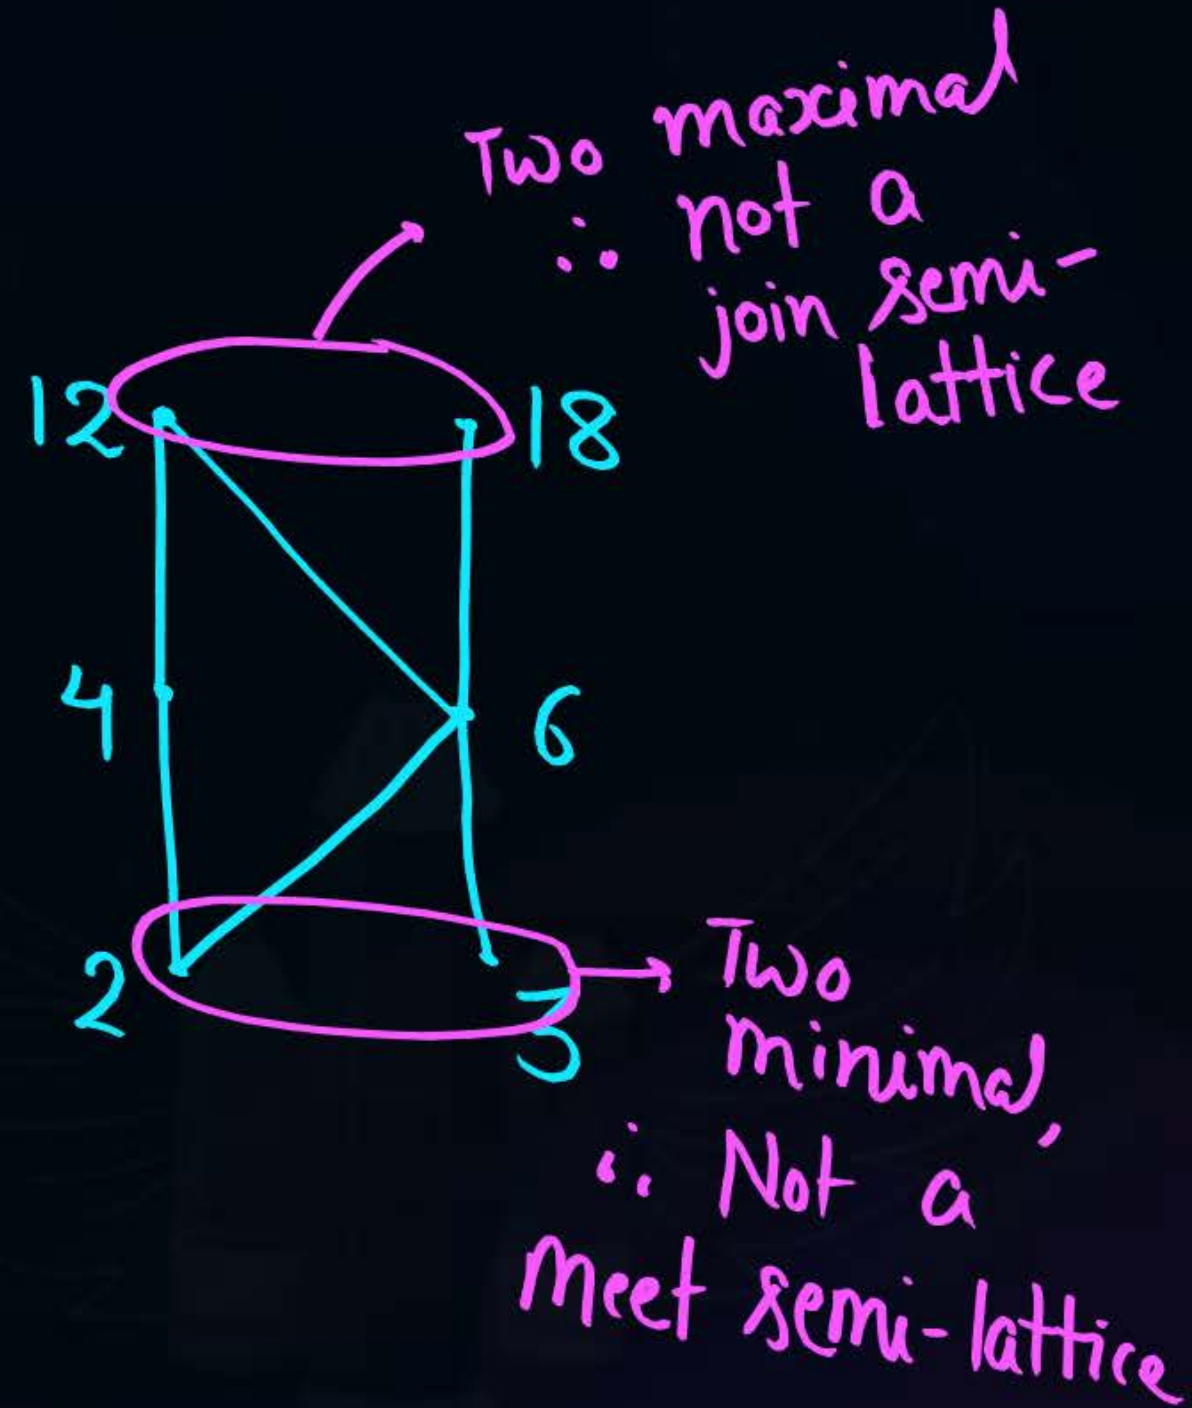 Two maximal
∴ not a
join semi-
lattice
12
18
4
6
2
3
Two
minimal,
∴ Not a
meet semi-lattice